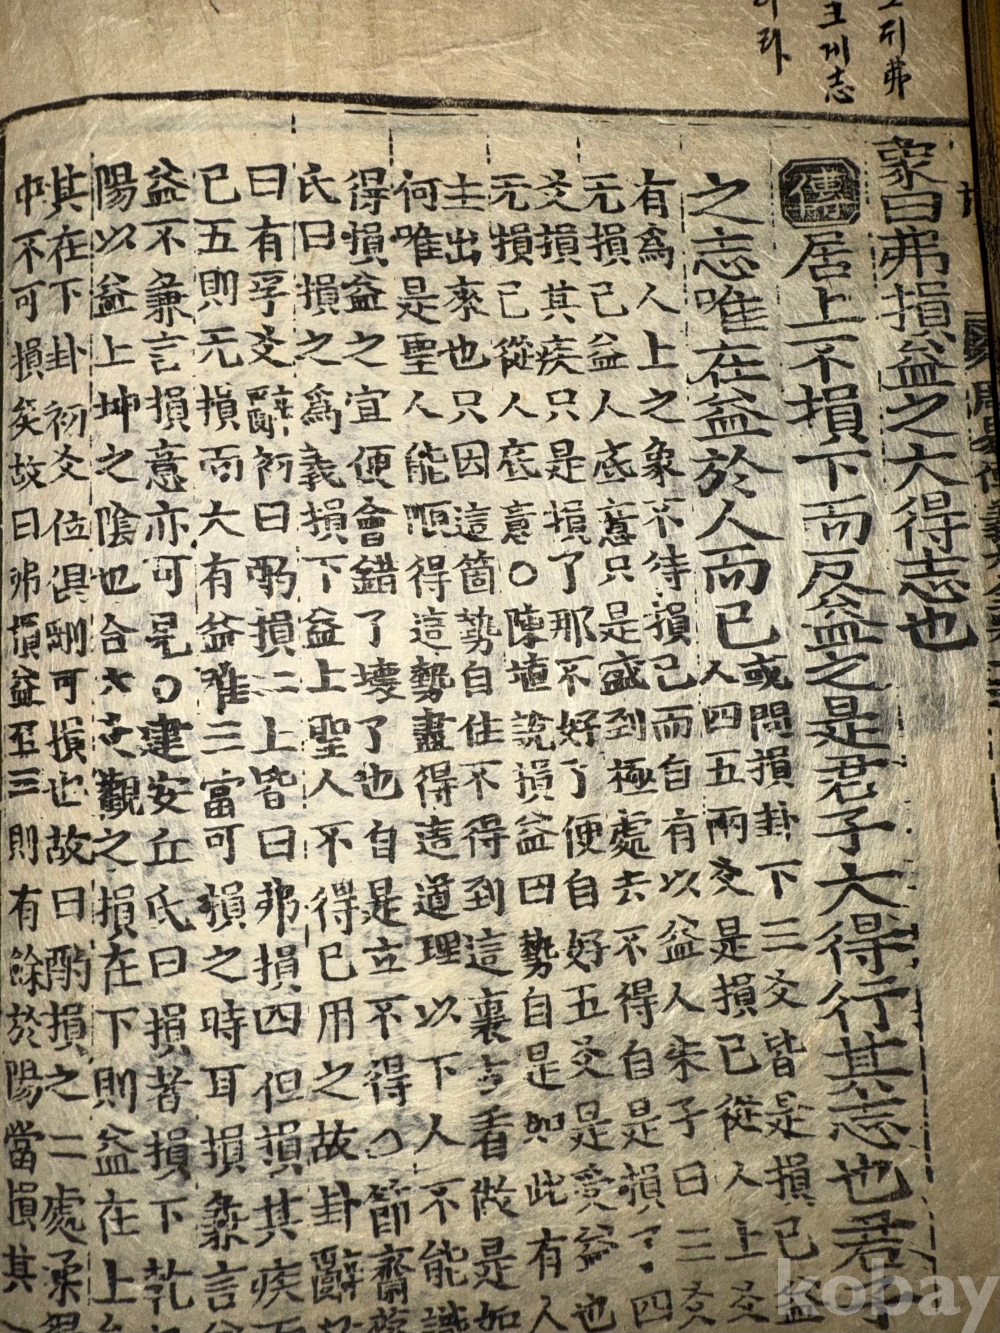 크게志
리라
象曰弗損益之大得志也
傳居上不損下而反益之是君子大得行其志也君子
之志唯在益於人而已
或問損卦下三爻皆是損已益
人四五兩爻是損已從人上爻
有爲人上之象不待損己而自有以益人朱子曰三爻
无損己益人底意只是盛到極處去不得自是損了四
爻損其疾只是損了那不好了便自好五爻是受益也
无損己從人底意○陳埴說損益曰勢自是如此有人
主出來也只因這箇勢自住不得到這裏方看做是如
何唯是聖人能順得這勢盡得這道理以下人不能識
得損益之宜便會錯了壞了也自是立不得○節齋蔡
氏曰損之爲義損下益上聖人不得已用之故卦辭
曰有孚爻辭初曰酌損二上皆曰弗損四但損其疾
已五則无損而大有益唯三當可損之時耳損彖言
益不兼言損意亦可見○建安丘氏曰損者損下乾
陽以益上坤之陰也合六爻觀之損在下則益在上
其在下卦初爻位俱剛可損也故曰酌損之二處柔
中不可損矣故曰弗損益至三則有餘於陽當損其
kobay